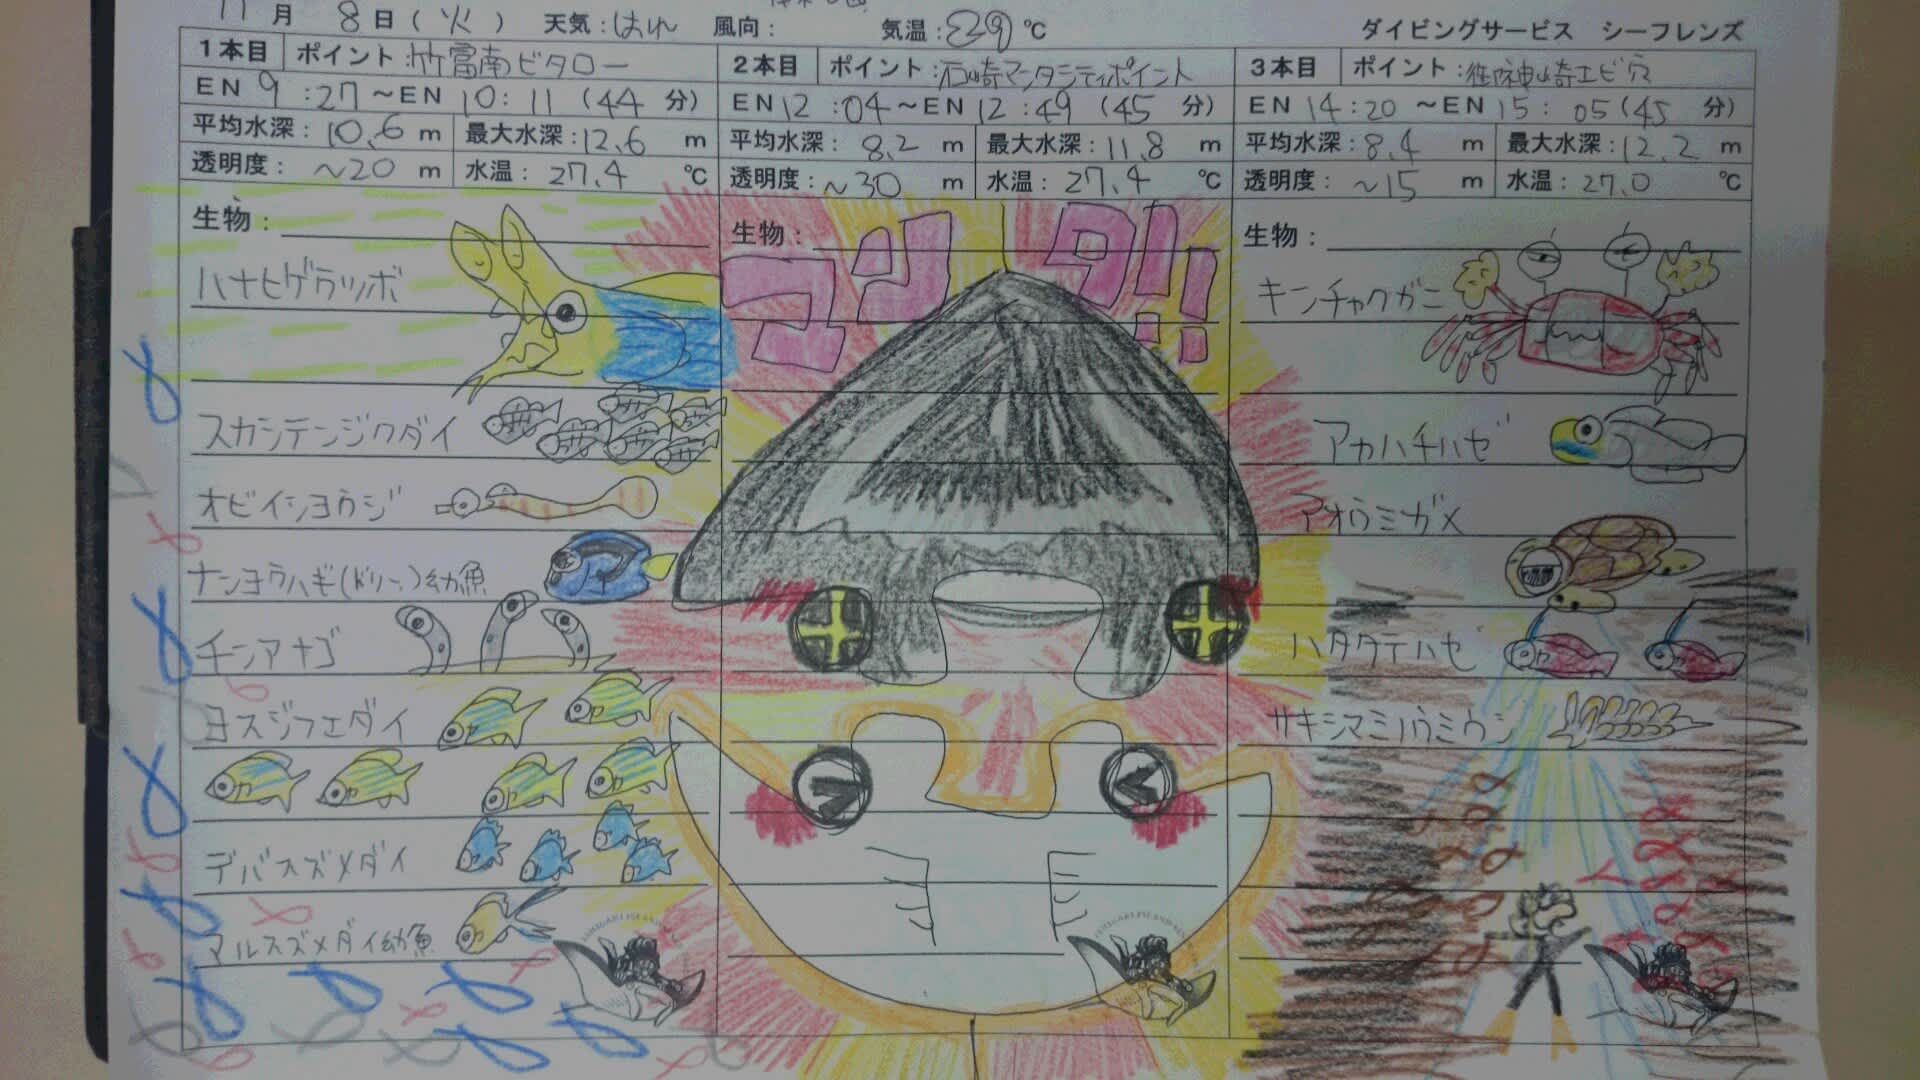 11月 8日(火) 天気:はれ 風向: 気温:29℃ ダイビングサービス シーフレンズ
1本目 ポイント:竹富南ビタロー
EN 9:27 ~EN 10:11 (44 分)
平均水深: 10.6 m 最大水深:12.6 m
透明度: ~20 m 水温: 27.4 ℃
生物:
ハナヒゲウツボ
スカシテンジクダイ
オビイシヨウジ
ナンヨウハギ(ドリー)幼魚
チンアナゴ
ヨスジフエダイ
デバスズメダイ
マルスズメダイ幼魚
2本目 ポイント:石崎マンタシティポイント
EN 12:04~EN 12:49 (45 分)
平均水深: 8.2 m 最大水深:11.8 m
透明度:~30 m 水温: 27.4 ℃
生物:
マンタ!!
3本目 ポイント:御神崎エビ穴
EN 14:20 ~EN 15:05 (45 分)
平均水深:8.4 m 最大水深:12.2 m
透明度: ~15 m 水温: 27.0 ℃
生物:
キンチャクガニ
アカハチハゼ
アオウミガメ
ハタタテハゼ
サキシマミノウミウシ